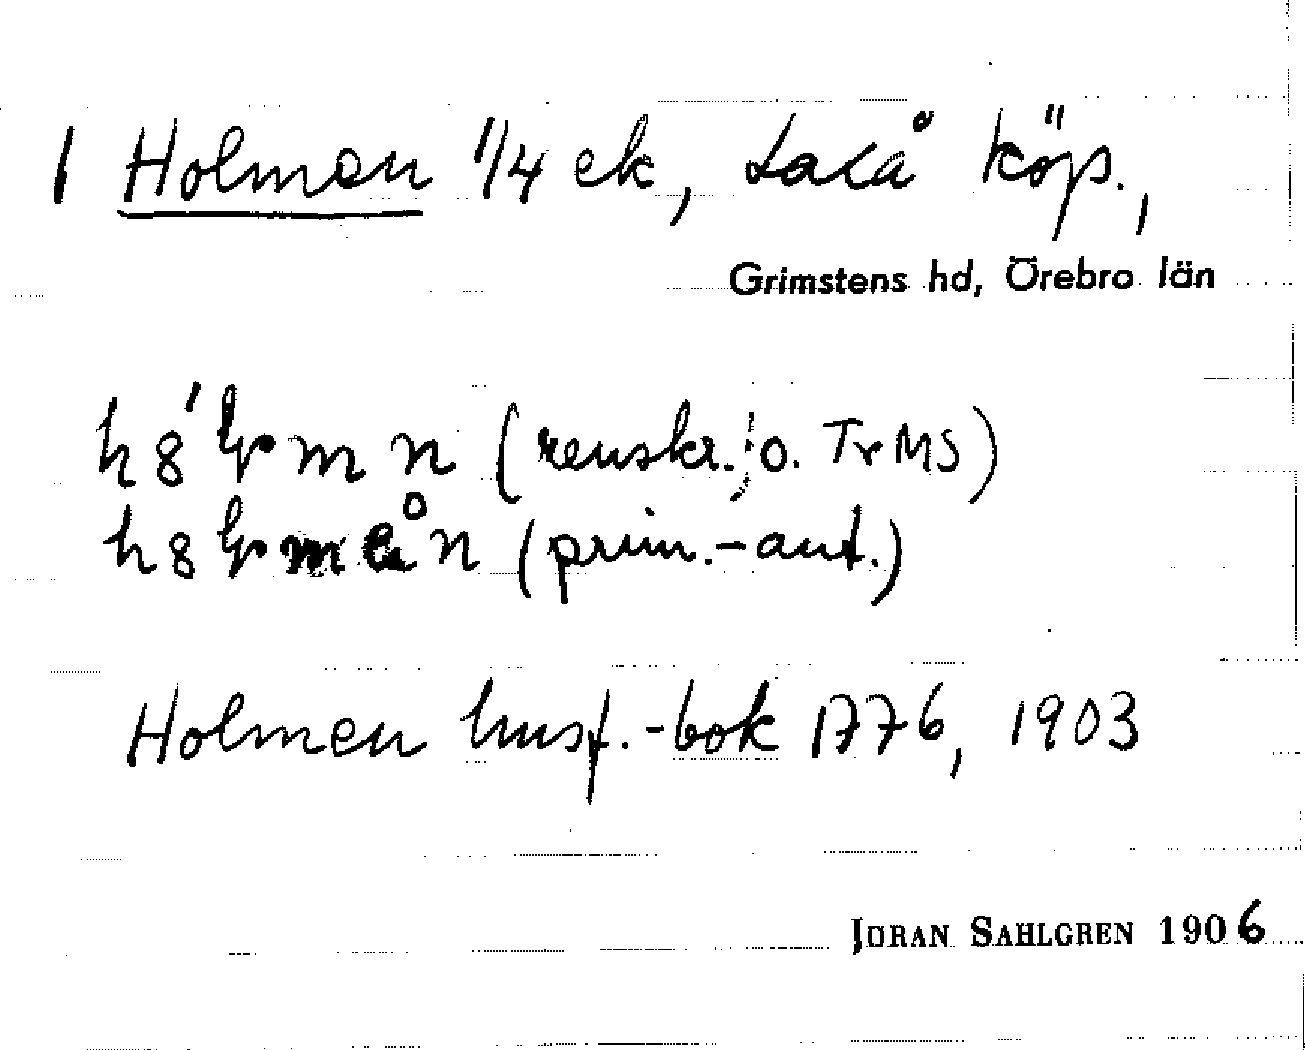 1 Holmen 1/4 ek, Laxå köp.,
Grimstens hd, Örebro län
(renskr.; o. TrMS)
(prim.-ant.)
Holmen husf.-bok 1776, 1903
JÖRAN SAHLGREN 1906